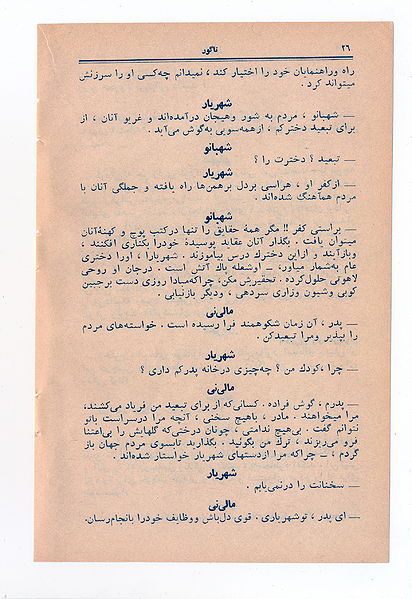 ۲۶
تاگور
راه وراهنمایان خود را اختیار کند ، نمیدانم چه‌کسی او را سرزنش
میتواند کرد .
شهریار
— شهبانو ، مردم به شور وهیجان درآمده‌اند و غریو آنان ، از
برای تبعید دخترکم ، ازهمه‌سویی به‌گوش می‌آید .
شهبانو
— تبعید ؟ دخترت را ؟
شهریار
— ازکفر او ، هراسی بردل برهمن‌ها راه یافته و جملگی آنان با
مردم هماهنگ شده‌اند .
شهبانو
— براستی کفر !! مگر همهٔ حقایق را تنها درکتب پوچ و کهنهٔ‌آنان
میتوان یافت . بگذار آنان عقاید پوسیدهٔ خودرا بکناری افکنند ،
وبازآیند و ازاین دخترك درس بیاموزند . شهریارا ، اورا دختری
عام به‌شمار میاور، — اوشعله پاك آتش است . درجان او روحی
لاهوتی حلول‌کرده . تحقیرش مکن، چراکه‌مبادا روزی دست برجبین
کوبی وشیون وزاری سردهی ، ودیگر بازنیابی .
مالی‌نی
— پدر ، آن زمان شکوهمند فرا رسیده است . خواسته‌های مردم
را بپذیر ومرا تبعیدکن .
شهریار
— چرا ،کودك من ؟ چه‌چیزی درخانه پدرکم داری ؟
مالی‌نی
— پدرم ، گوش فراده . کسانی‌که از برای تبعید من فریاد می‌کشند،
مرا میخواهند . مادر ، باهیچ سخنی ، آنچه مرا درسراست بانو
نتوانم گفت . بی‌هیچ ندامتی ، چونان درختی‌که گلهایش را بی‌اعتنا
فرو می‌ریزند ، ترك من بگوئید . بگذارید تابسوی مردم جهان باز
گردم ، — چراکه مرا ازدستهای شهریار خواستار شده‌اند .
شهریار
— سخنانت را درنمی‌یابم .
مالی‌نی
— ای پدر ، توشهریاری . قوی دل‌باش ووظایف خودرا بانجام‌رسان.